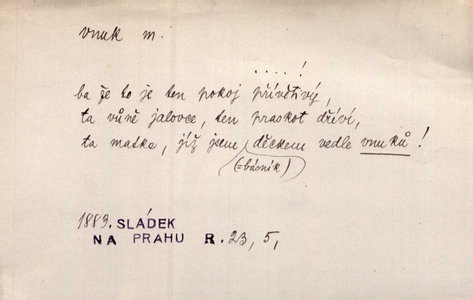 vnuk m.
. . . . !
ba že to je ten pokoj přívětivý,
ta vůně jalovce, ten praskot dříví,
ta matka, jíž jsem děckem vedle vnuků !
(=básník)
1889. SLÁDEK
NA PRAHU R. 23, 5,